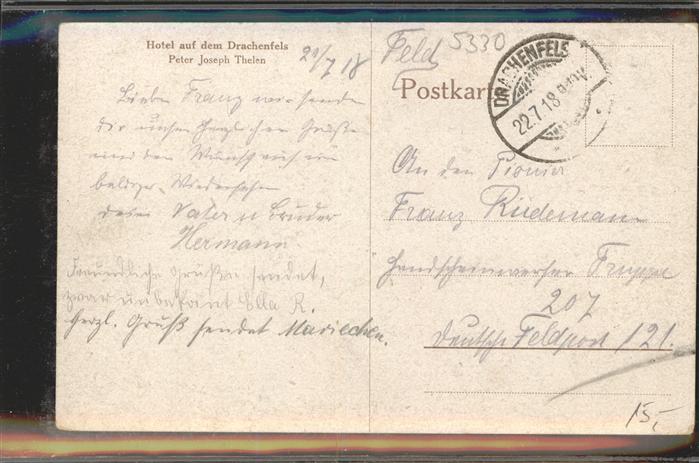 Hotel auf dem Drachenfels
Peter Joseph Thelen
21/7 18
Lieber Franz wir senden
dir unsere herzlichen Grüße
und den Wunsch auf ein
baldiges Wiedersehen
dein Vater u Bruder
Hermann
Freundliche Grüße sendet,
zwar unbekannt Ella R.
Herzl. Gruß sendet Mariechen.
Feld 5330
Postkarte
DRACHENFELS
22.7.18
An den Pionier
Franz Rüdemann
Handscheinwerfer Truppe
207
Deutsche Feldpost 121.
15,-